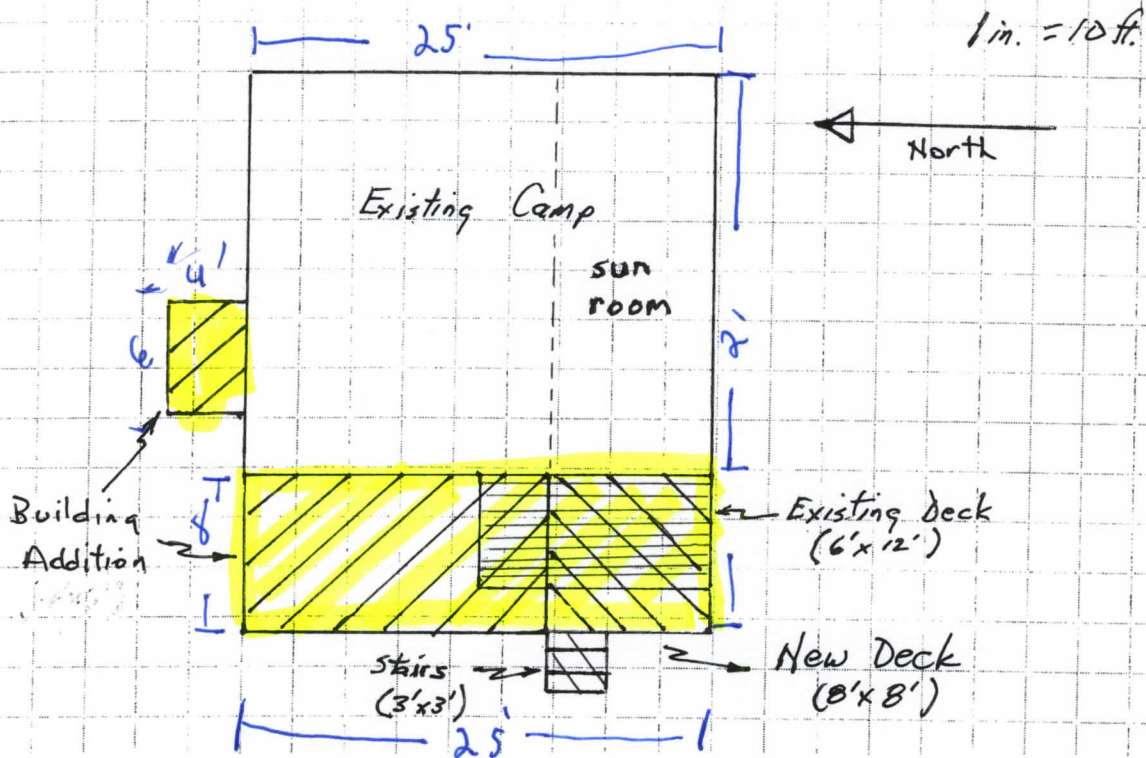 25'
1 in. = 10 ft.
North
Existing Camp
sun
room
4'
6
2'
Building
Addition
8'
Existing Deck
(6'x12')
stairs
(3'x3')
New Deck
(8'x8')
25'